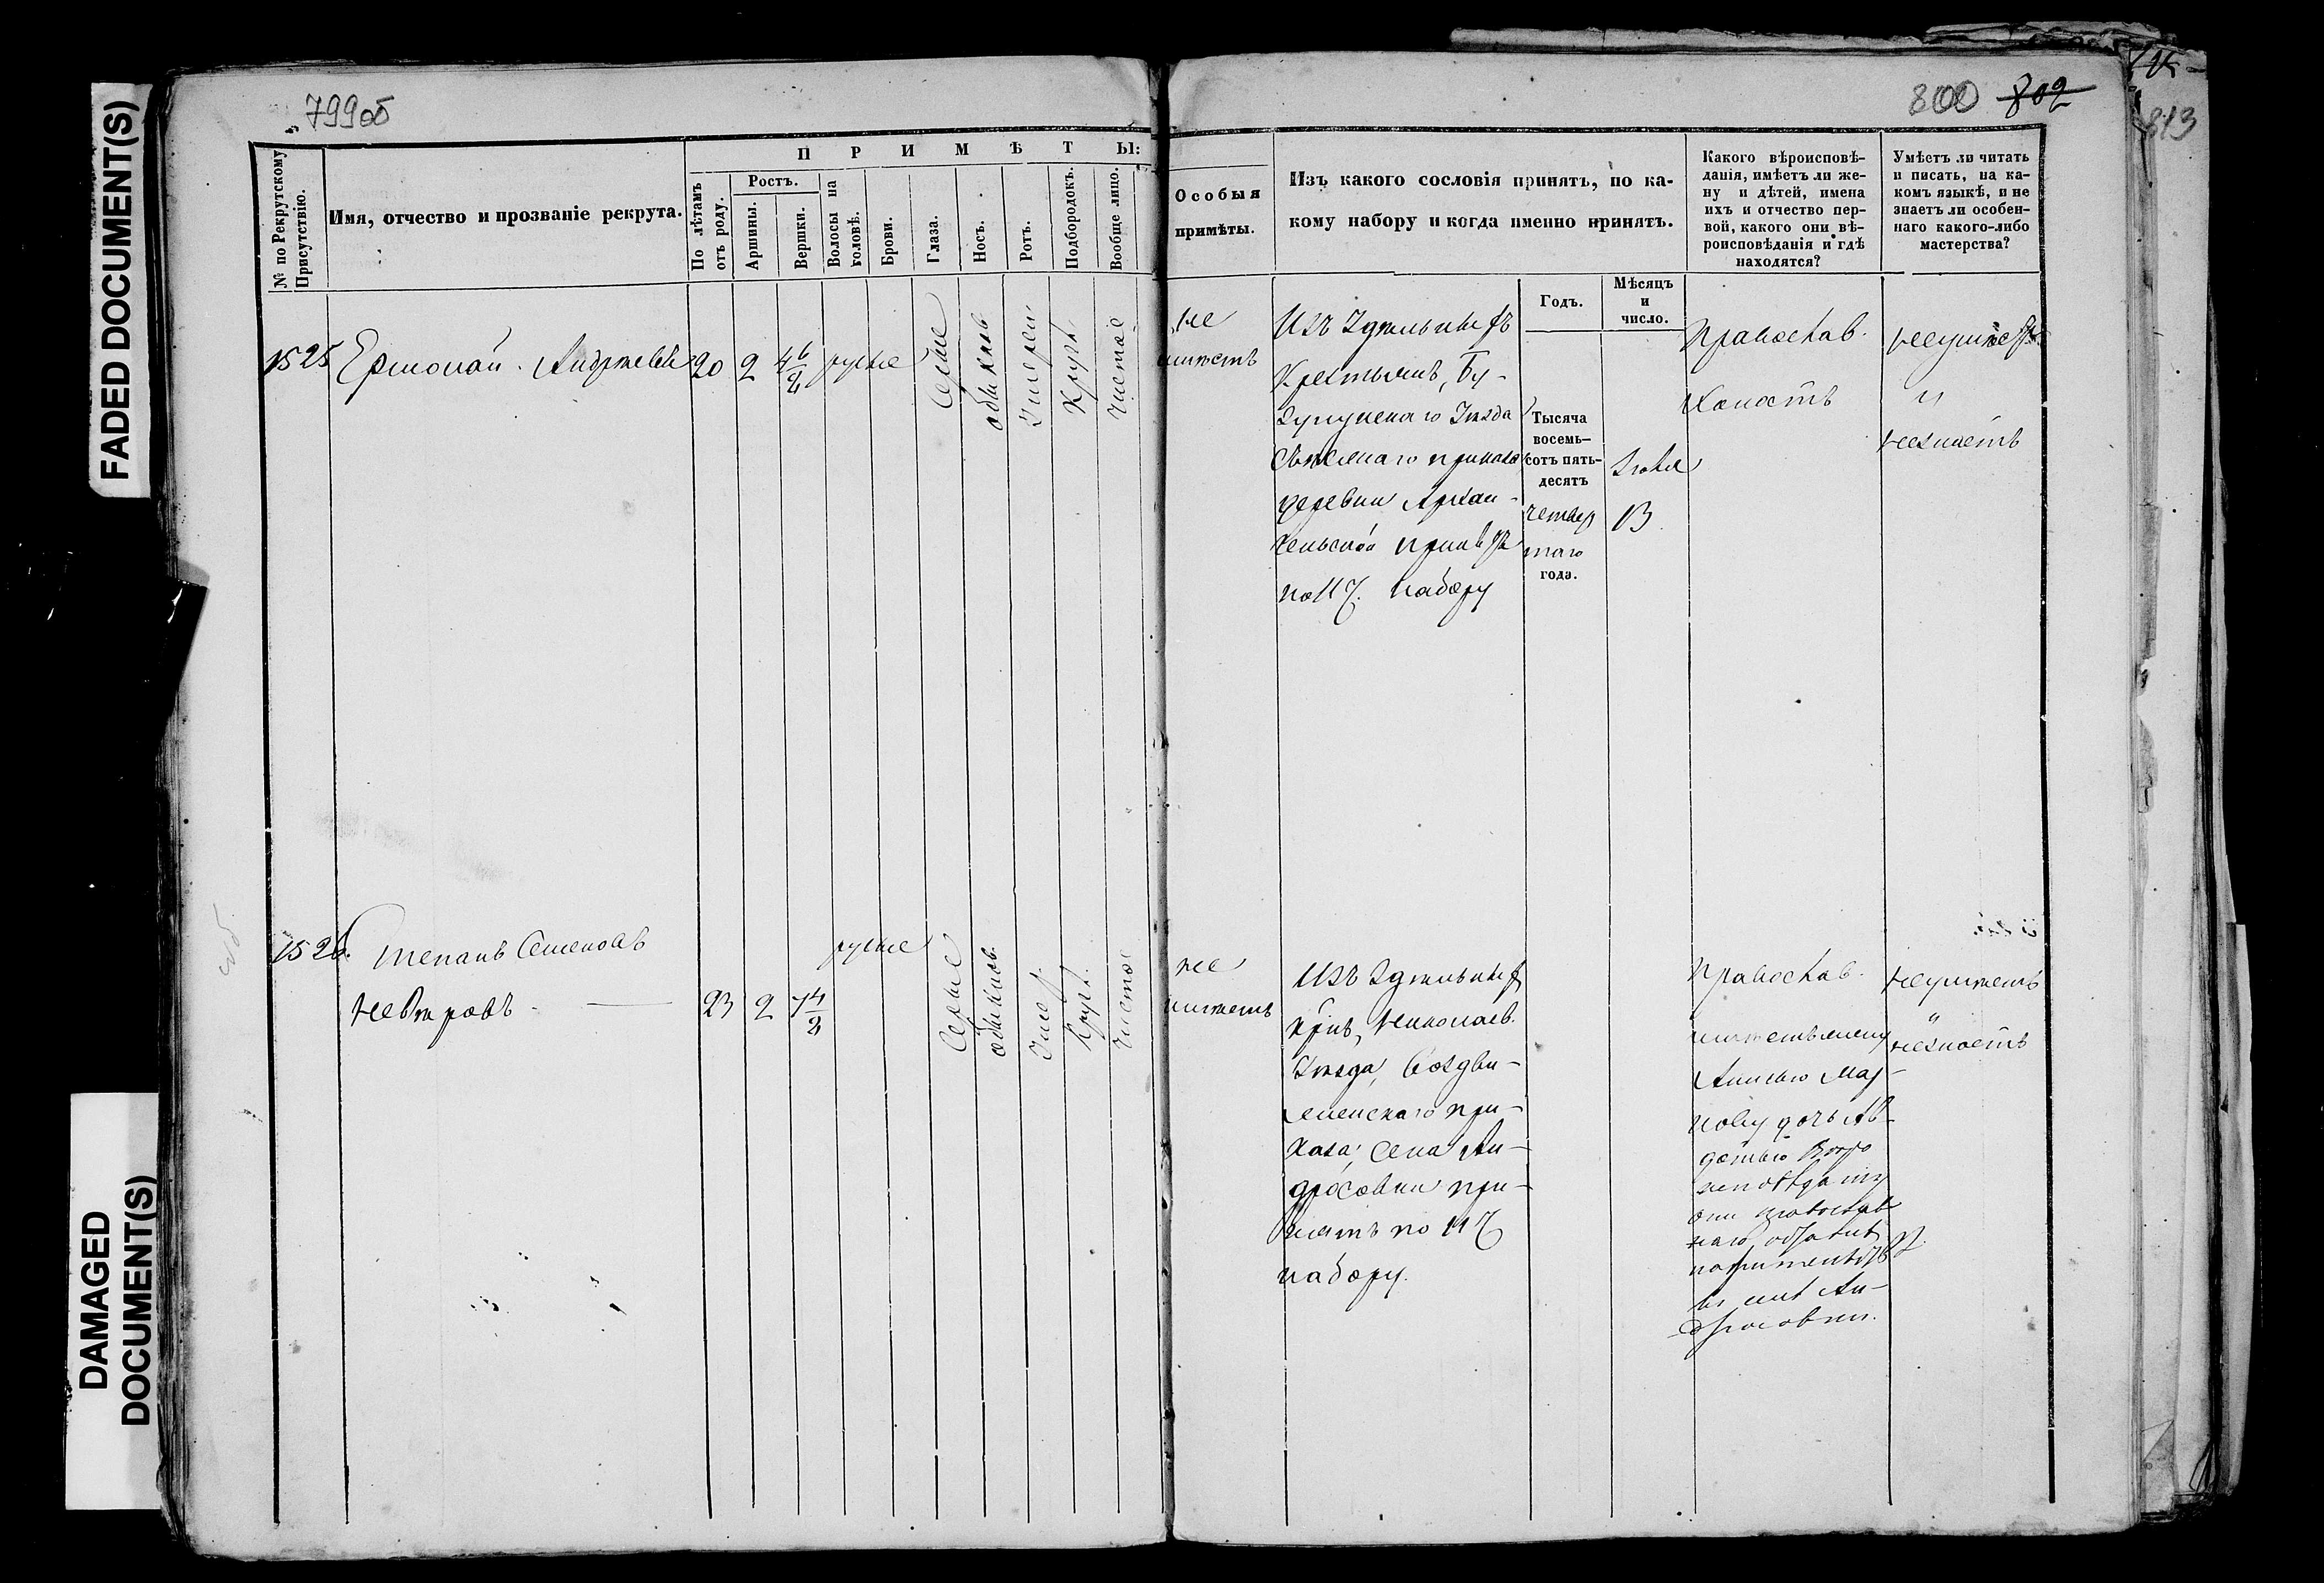 FADED DOCUMENT(S)
DAMAGED
DOCUMENT(S)
799об
800 802
813
№ по Рекрутскому
Присутствію.
Имя, отчество и прозваніе рекрута.
П Р И М Ѣ Т Ы:
По лѣтамъ
отъ роду.
Ростъ.
Аршины.
Вершки.
Волосы на
головѣ.
Брови.
Глаза.
Носъ.
Ротъ.
Подбородокъ.
Вообще лицо.
Особыя
примѣты.
Изъ какого сословія принятъ, по ка-
кому набору и когда именно принятъ.
Какого вѣроисповѣ-
данія, имѣетъ ли же-
ну и дѣтей, имена
ихъ и отчество пер-
вой, какого они вѣ-
роисповѣданія и гдѣ
находятся?
Умѣетъ ли читать
и писать, на ка-
комъ языкѣ, и не
знаетъ ли особен-
наго какого-либо
мастерства?
Годъ.
Мѣсяцъ
и
число.
1525 Ермолай Андреевъ 20 2 4 6/2 русые
Серые
обыкнов
Умерен
Кругл.
Чистое
не
имѣетъ
Изъ Удѣльныхъ
Крестьянъ, Бу-
зулукскаго Уѣзда
приказа
деревни Архан-
гельской принятъ
по 11 Ч. набору
Тысяча
восемь-
сотъ пять-
десятъ
четвер
таго
года.
Іюля
13
Православ.
Холостъ
неумѣетъ
и
незнаетъ
1526. Степанъ Семеновъ
русые
23 2 7 4/2
Серые
обыкнов.
Умер.
Кругл.
Чистое
не
имѣетъ
Изъ Удѣльных
Крнъ, Николаев.
Уѣзда, Воздви-
женскаго при-
каза, Села Ан-
дросовки при-
нятъ по 11 Ч
набору.
Православ.
имѣетъ жену
Анисью Мар-
кову дочь Ав-
дотью
они православ
наго
въ селѣ Ан-
дросовки.
неумѣетъ
и
незнаетъ